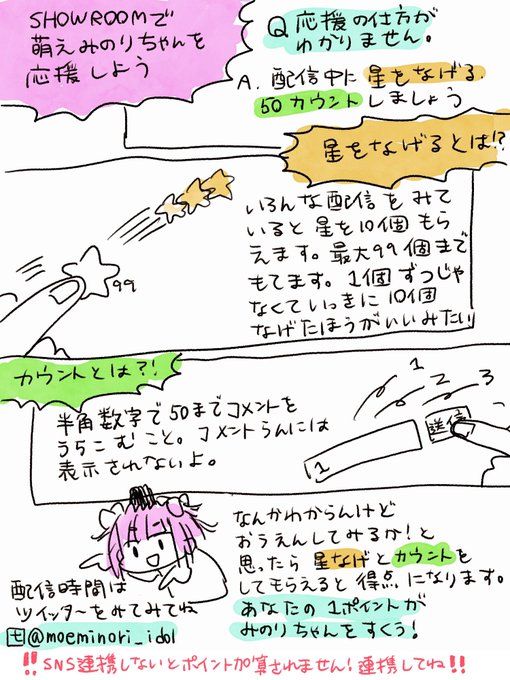 SHOWROOMで
萌えみのりちゃんを
応援しよう
Q 応援の仕方が
わかりません。
A. 配信中に星をなげる
50カウントしましょう
星をなげるとは!?
いろんな配信をみて
いると星を10個もら
えます。最大99個まで
もてます。1個ずつじゃ
なくていっきに10個
なげたほうがいいみたい
99
カウントとは?!
半角数字で50までコメントを
うちこむこと。コメントらんには
表示されないよ。
1 2 3
1
送信
なんかわからんけど
おうえんしてみるか!と
思ったら星なげとカウントを
してもらえると得点になります。
あなたの1ポイントが
みのりちゃんをすくう!
配信時間は
ツイッターをみてみてね
@moeminori_idol
!!SNS連携しないとポイント加算されません!連携してね!!